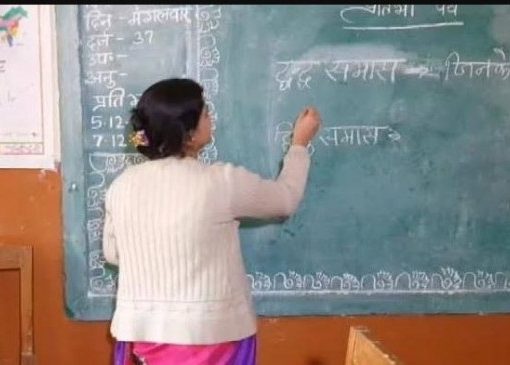 दिन - मंगलवार
दर्ज - 37
उप० -
अनु -
प्रति
5.12.
7.12
द्वंद्व समास → जिनके
द्विगु समास →